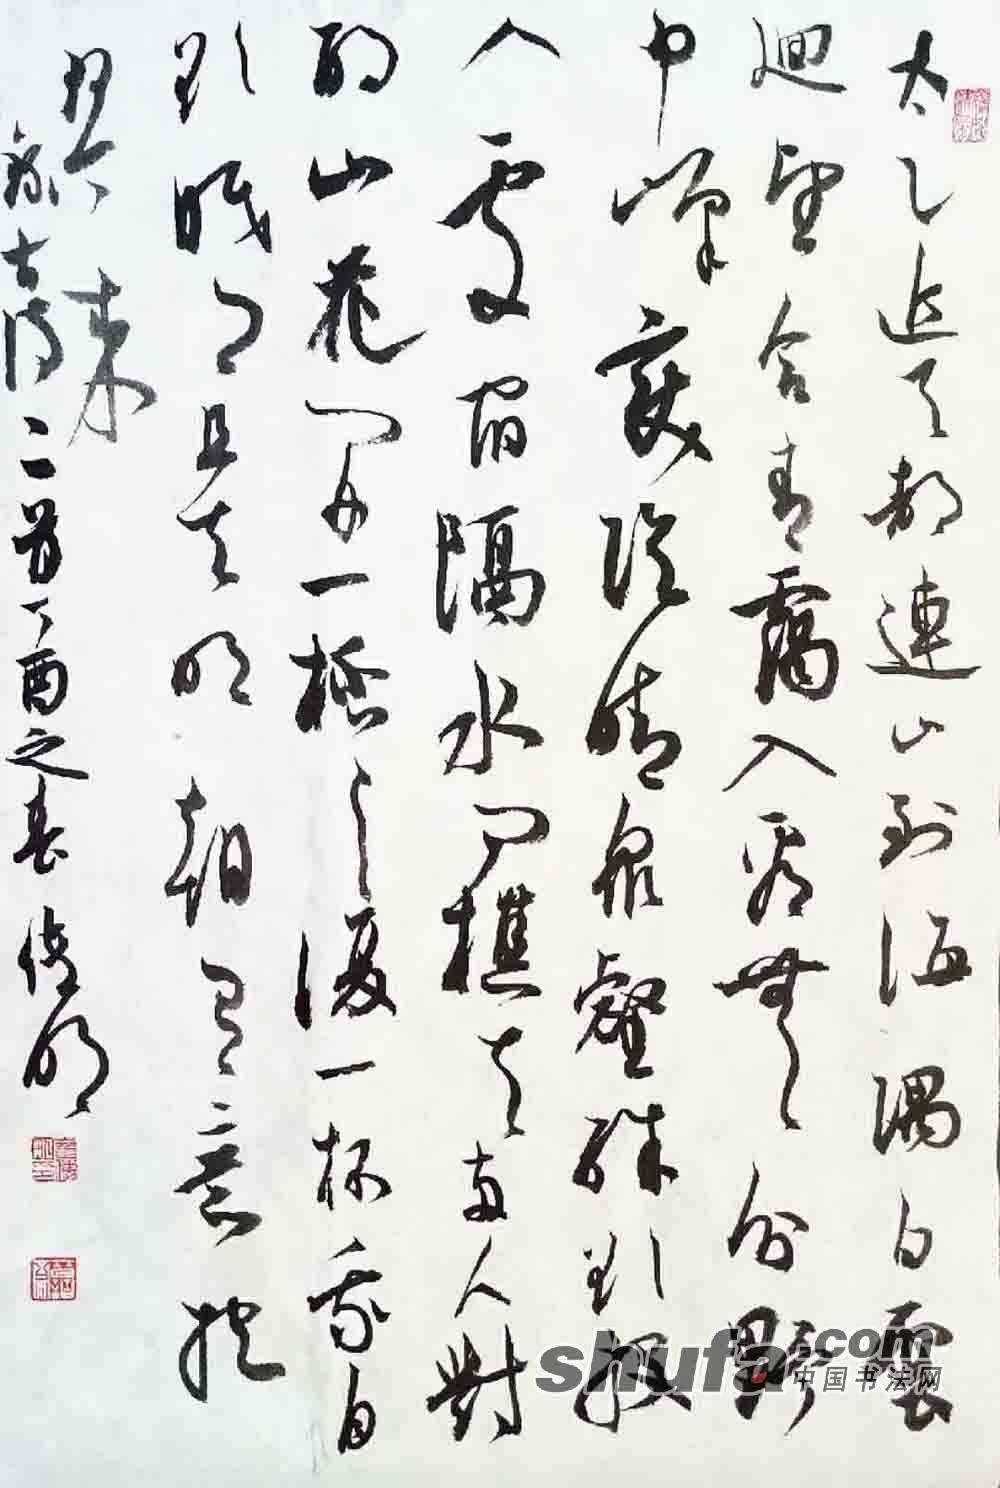 太乙近天都連山到海隅白雲
迴望合青靄入看無分野
中峰變陰晴眾壑殊欲投
人處宿隔水問樵夫兩人對
酌山花開一杯々復一杯我自
欲眠卿且去明朝有意抱
琴來
錄古詩二首丁酉之春明
shufa.com
中国书法网